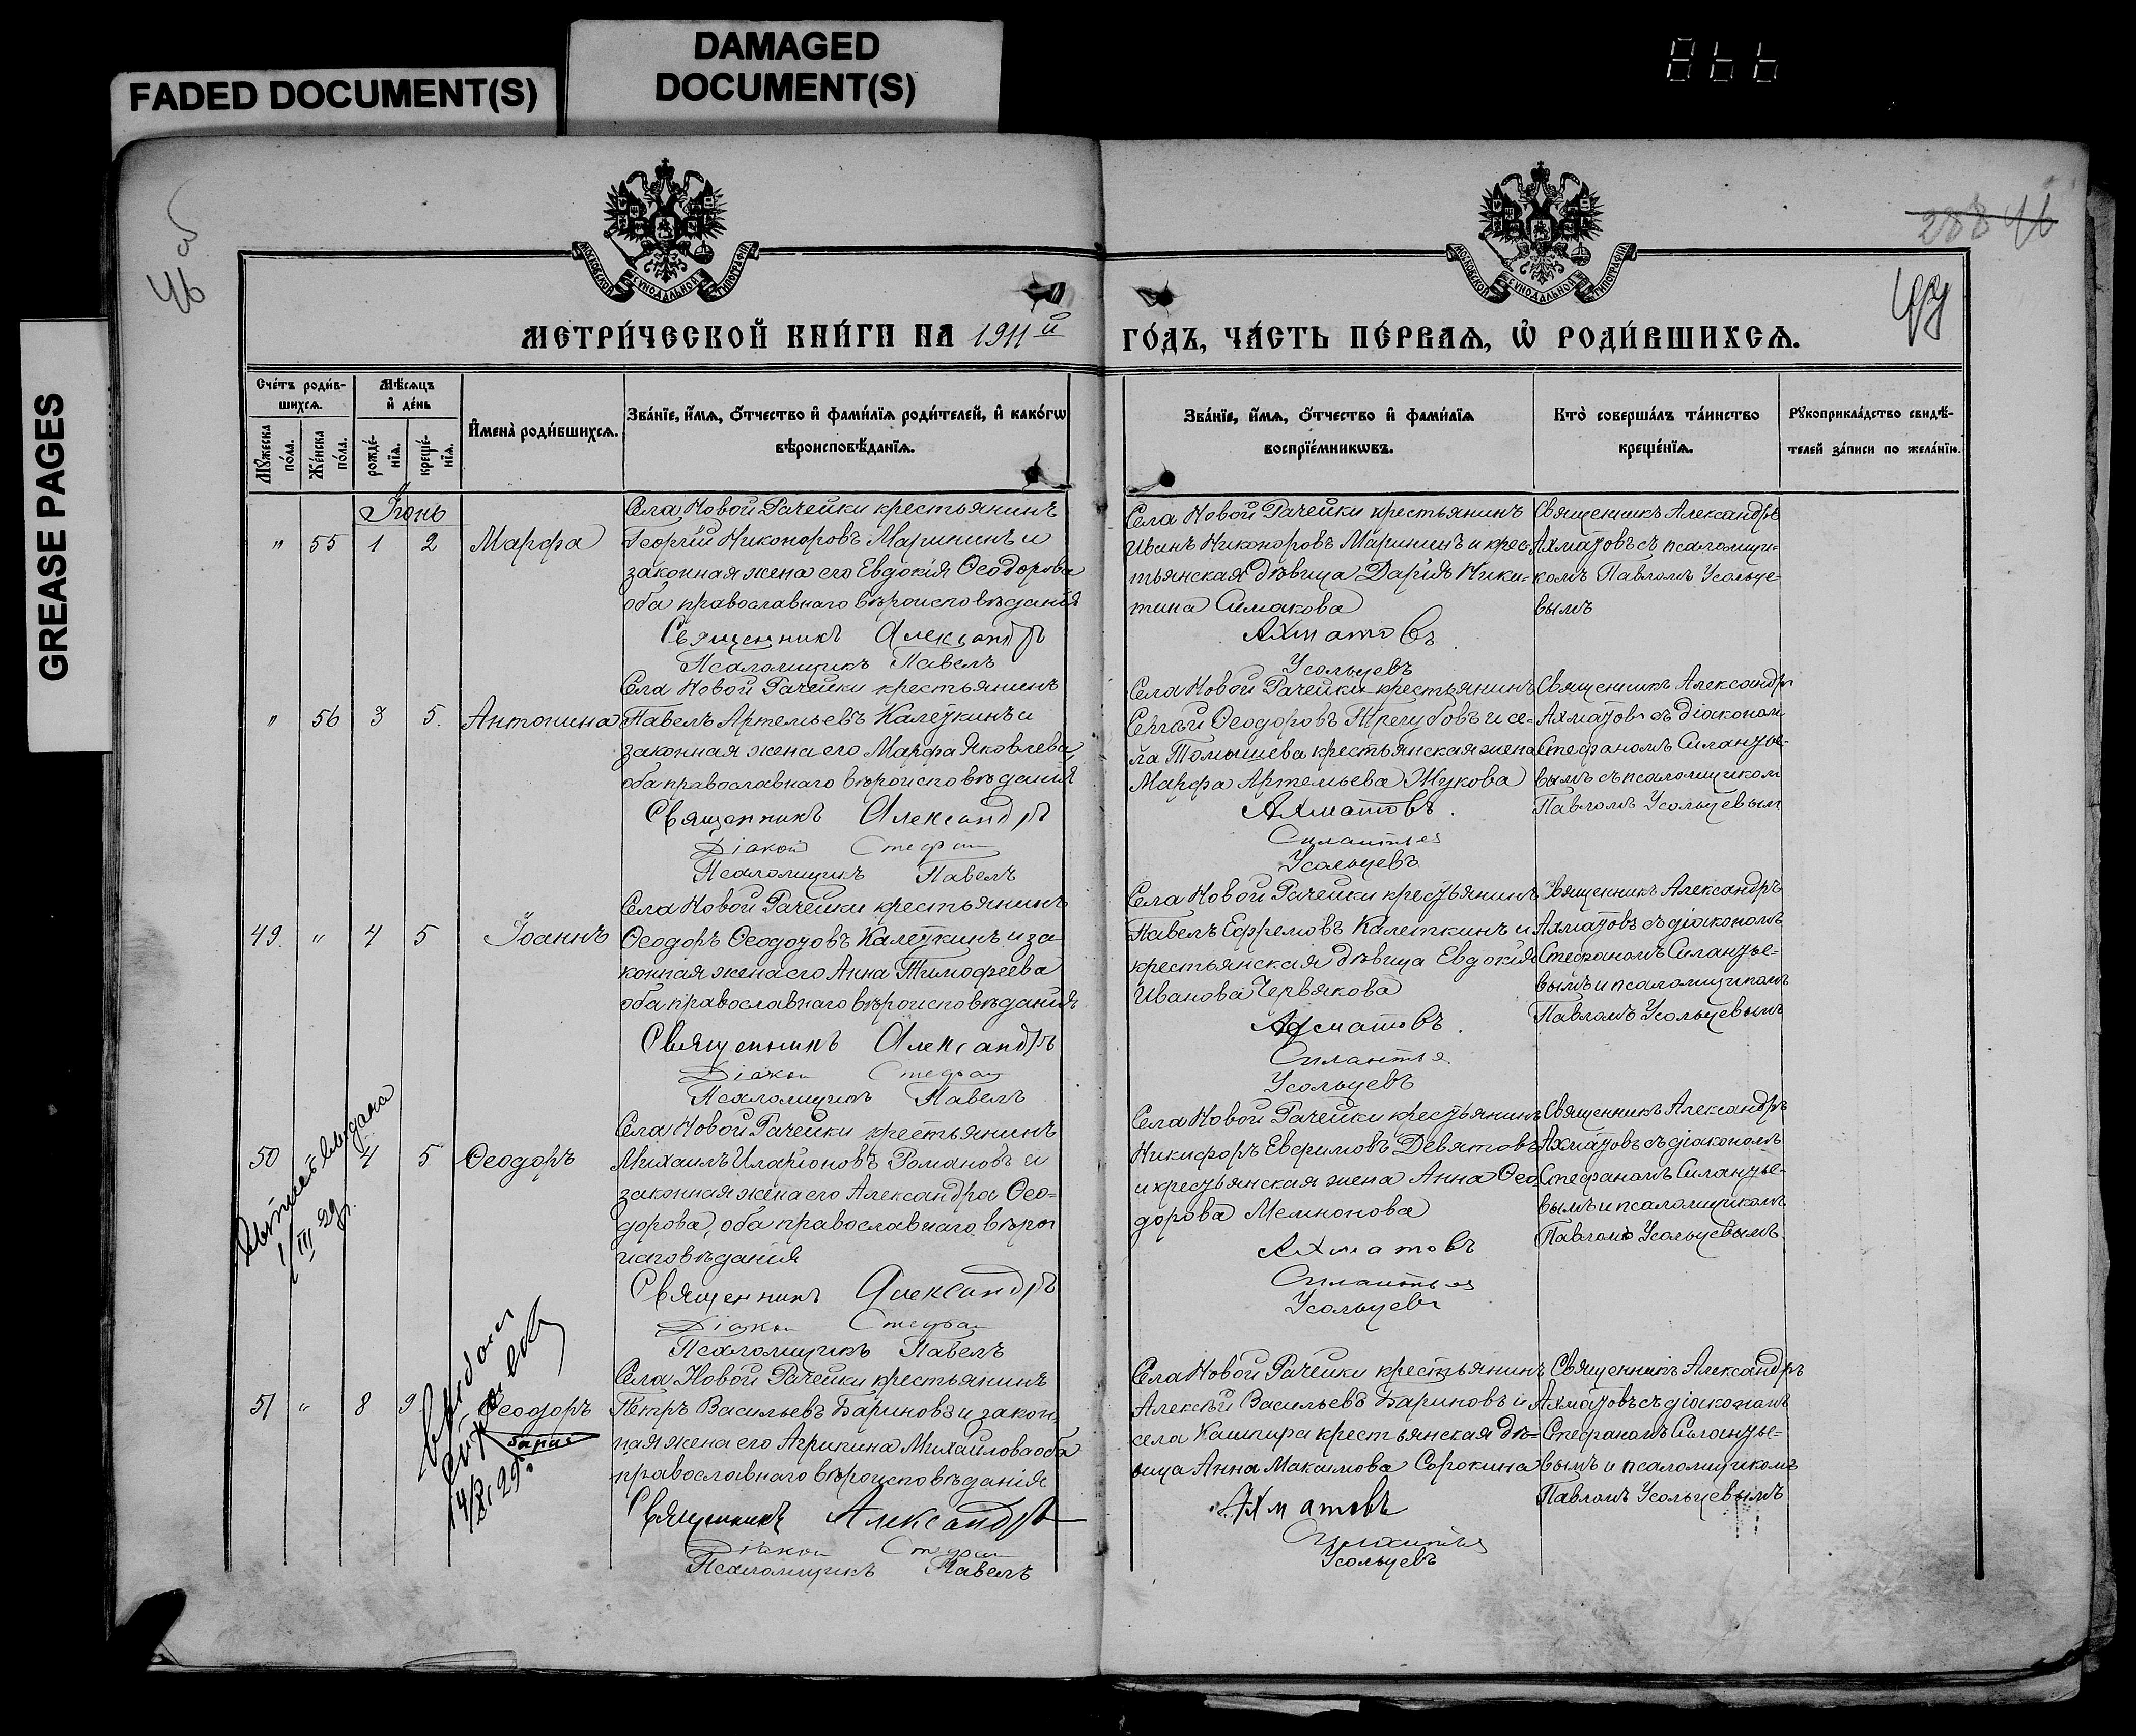 FADED DOCUMENT(S)
DAMAGED
DOCUMENT(S)
GREASE PAGES
866
46
об
288 46
МОСКОВСКОЙ СѴНОДАЛЬНОЙ ТИПОГРАФІИ
МОСКОВСКОЙ СѴНОДАЛЬНОЙ ТИПОГРАФІИ
МЕТРИ́ЧЕСКОЙ КНИ́ГИ НА 1911й
ГО́ДЪ, ЧА́СТЬ ПЕ́РВАѦ, Ѡ҆ РОДИ́ВШИХСѦ.
Сче́тъ роди́в-
шихсѧ.
Мꙋжеска по́ла.
Же́нска по́ла.
Мѣ́сѧцъ
и҆ де́нь
рожде́-
нїѧ.
креще́-
нїѧ.
И҆мена̀ роди́вшихсѧ.
Зва́нїе, и҆́мѧ, ѻ҆́тчество и҆ фами́лїѧ роди́телей, и҆ како́гѡ
вѣроисповѣ́данїѧ.
Зва́нїе, и҆́мѧ, ѻ҆́тчество и҆ фами́лїѧ
воспрїе́мникѡвъ.
Кто̀ соверша́лъ та́инство
креще́нїѧ.
Рꙋкоприкла́дство свидѣ́-
телей за́писи по жела́нїю.
Іюнь
" 55 1 2 Марфа
Села Новой Рачейки крестьянинъ
Георгій Никоноровъ Маринин и
законная жена его Евдокія Ѳеодорова
оба православнаго вѣроисповѣданія
Священникъ Александръ
Псаломщикъ Павелъ
Села Новой Рачейки крестьянинъ
Иванъ Никоноровъ Маринин и крес-
тьянская дѣвица Дарія Ники-
тина Симакова
Ахматовъ
Усольцевъ
Священникъ Александръ
Ахматовъ съ псаломщи-
комъ Павломъ Усольце-
вымъ
" 56 3 5. Антонина
Села Новой Рачейки крестьянинъ
Павелъ Артемьевъ Калеткинъ и
законная жена его Марфа Яковлева,
оба православнаго вѣроисповѣданія
Священникъ Александръ
Діакон Стефан
Псаломщикъ Павелъ
Села Новой Рачейки крестьянинъ
Сергѣй Ѳеодоровъ Трегубовъ и се-
ла Томышева крестьянская жена
Марфа Артемьева Жукова
Ахматовъ.
Силантьев
Усольцевъ
Священникъ Александръ
Ахматовъ съ діаконом
Стефаномъ Силантье-
вымъ съ псаломщиком
Павломъ Усольцевым
49. " 4 5 Іоаннъ
Села Новой Рачейки крестьянинъ
Ѳеодоръ Ѳеодотовъ Калеткинъ и за-
конная жена его Анна Тимофеева
оба православнаго вѣроисповѣданія
Священникъ Александръ
Діакон Стефан
Псаломщикъ Павелъ
Села Новой Рачейки крестьянинъ
Павелъ Ефремовъ Калеткинъ и
крестьянская дѣвица Евдокія
Иванова Червякова
Ахматовъ.
Силантье
Усольцевъ
Священникъ Александръ
Ахматовъ съ діакономъ
Стефаномъ Силантье-
вымъ и псаломщикомъ
Павломъ Усольцевымъ
50 4 5 Ѳеодоръ
выдана
1/III 29г.
Села Новой Рачейки крестьянинъ
Михаилъ Иларіоновъ Романовъ и
законная жена его Александра Ѳео-
дорова, оба православнаго вѣро
исповѣданія
Священникъ Александръ
Діакон Стефан
Псаломщикъ Павелъ
Села Новой Рачейки крестьянинъ
Никифоръ Евфимовъ Девятовъ
и крестьянская жена Анна Ѳео
дорова Мемнонова
Ахматовъ
Силантьев
Усольцевъ
Священникъ Александръ
Ахматовъ съ діакономъ
Стефаномъ Силантье-
вымъ и псаломщикомъ
Павломъ Усольцевымъ.
51 " 8 9 Ѳеодоръ
Села Новой Рачейки крестьянинъ
Петръ Васильевъ Бариновъ и закон-
ная жена его Агрипина Михайлова оба
православнаго вѣроисповѣданія
Священникъ Александръ
Діакон Стефан
Псаломщикъ Павелъ
Села Новой Рачейки крестьянинъ
Алексѣй Васильевъ Бариновъ и
села Кашпира крестьянская дѣ-
вица Анна Макаимова Сорокина
Ахматовъ
Силантьев
Усольцевъ
Священникъ Александръ
Ахматовъ съ діакономъ
Стефаномъ Силантье-
вымъ и псаломщикомъ
Павломъ Усольцевымъ